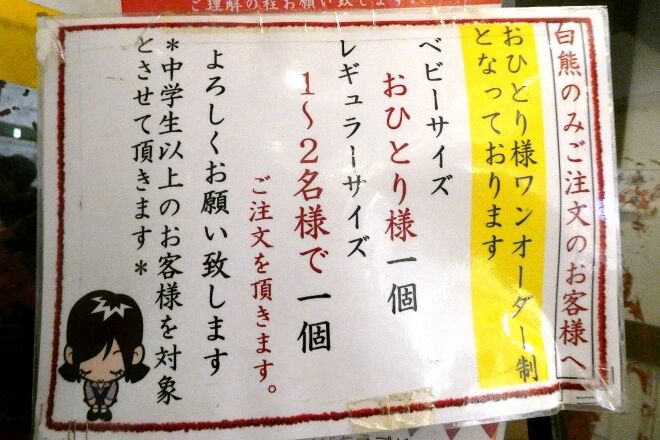 ご理解の程お願い致します
白熊のみご注文のお客様へ
おひとり様ワンオーダー制
となっております
ベビーサイズ
おひとり様一個
レギュラーサイズ
1〜2名様で一個
ご注文を頂きます。
よろしくお願い致します
*中学生以上のお客様を対象
とさせて頂きます*